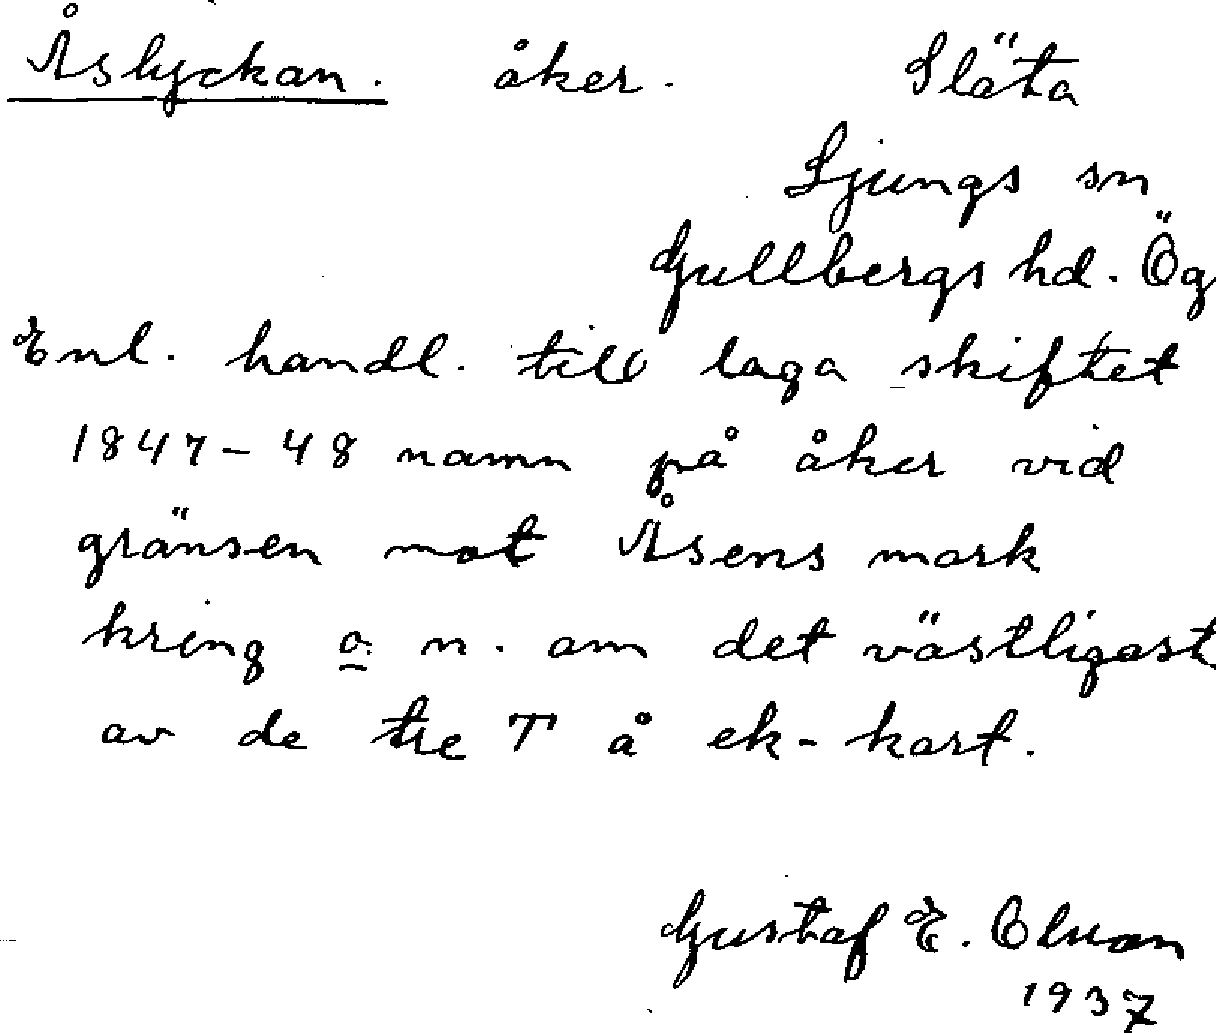 Åslyckan. åker. Släta
Ljungs sn
Gullbergs hd. Ög
Enl. handl. till laga skiftet
1847-48 namn på åker vid
gränsen mot Åsens mark
kring o. n. om det västligast
av de tre T å ek-kart.
Gustaf E.
1937